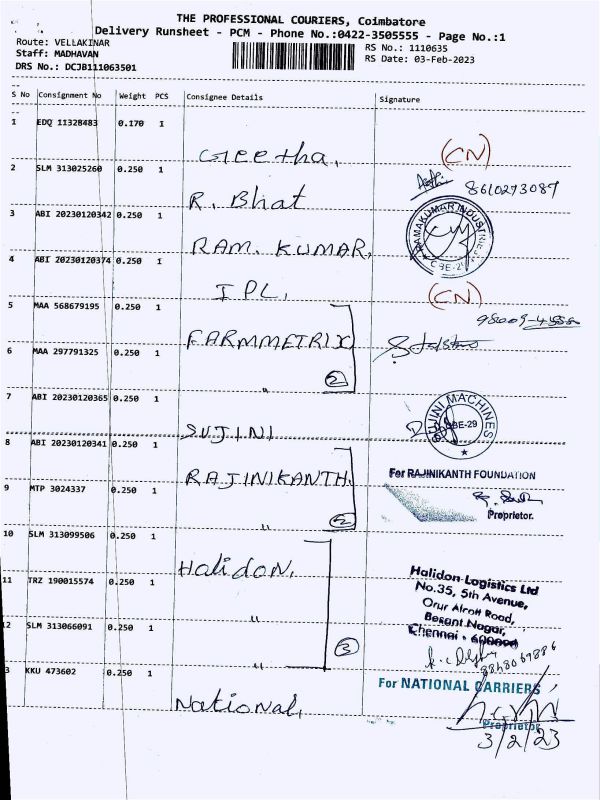 THE PROFESSIONAL COURIERS, Coimbatore
Delivery Runsheet - PCM - Phone No.:0422-3505555 - Page No.:1
Route: VELLAKINAR
RS No.: 1110635
Staff: MADHAVAN
RS Date: 03-Feb-2023
DRS No.: DCJB111063501
S No Consignment No Weight PCS Consignee Details Signature
1 EDQ 11328483 0.170 1
Geetha, (CN)
2 SLM 313025260 0.250 1
8610273087
R. Bhat
3 ABI 20230120342 0.250 1
RAMAKUMAR INDUSTRIES
CBE-29
RAM. KUMAR,
4 ABI 20230120374 0.250 1
IPL, (CN)
5 MAA 568679195 0.250 1
FARMMETRIX
6 MAA 297791325 0.250 1
" 2
7 ABI 20230120365 0.250 1
SUJINI MACHINES
CBE-29
SUJINI
8 ABI 20230120341 0.250 1
RAJINIKANTH,
For RAJINIKANTH FOUNDATION
9 MTP 3024337 0.250 1
Proprietor.
" 2
10 SLM 313099506 0.250 1
Halidon,
Halidon Logistics Ltd
No.35, 5th Avenue,
11 TRZ 190015574 0.250 1
Orur Alcott Road,
Besant Nagar,
"
12 SLM 313066091 0.250 1
Chennai -
" 3
8848069886
3 KKU 473602 0.250 1
For NATIONAL CARRIERS
National,
Proprietor
3/2/23